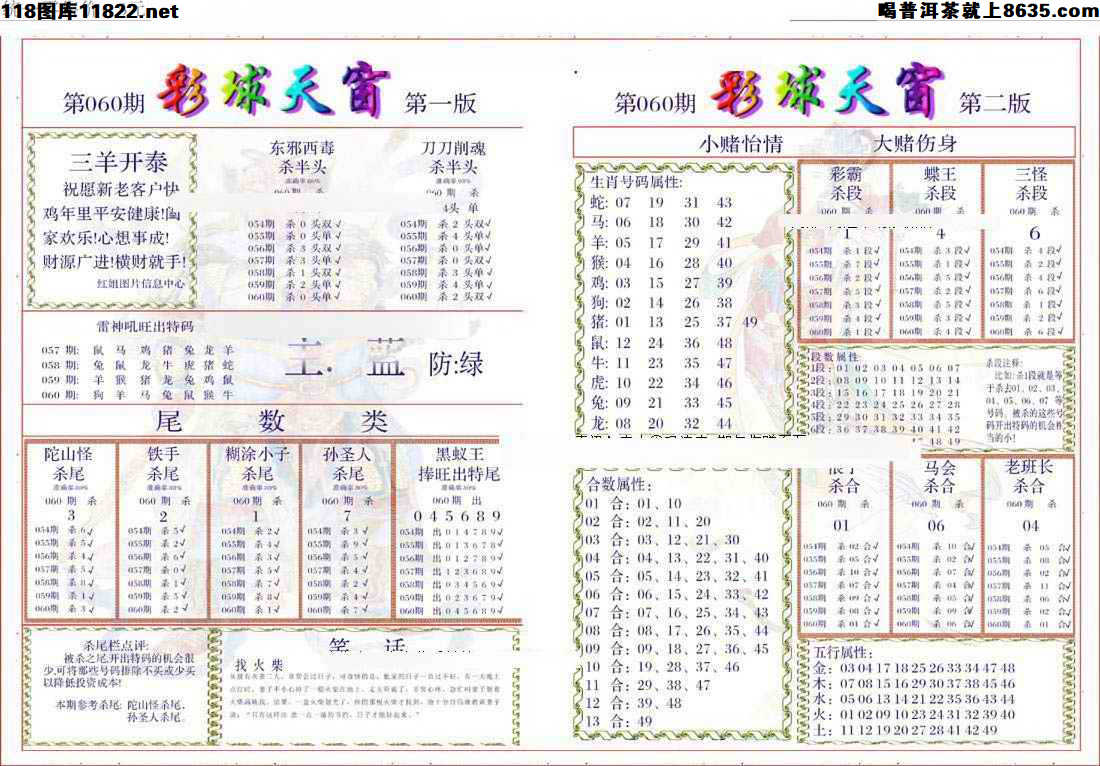 118图库11822.net
喝普洱茶就上8635.com
第060期
彩球天窗
第一版
三羊开泰
祝愿新老客户快
鸡年里平安健康!
家欢乐!心想事成!
财源广进!横财就手!
红姐图片信息中心
东邪西毒
杀半头
060期 杀
054期 杀 0 头双√
055期 杀 0 头单√
056期 杀 3 头双√
057期 杀 3 头单√
058期 杀 1 头双√
059期 杀 2 头单√
060期 杀 0 头单√
刀刀削魂
杀半头
060 期 杀
4头 单
054期 杀 2 头双√
055期 杀 4 头单√
056期 杀 0 头单√
057期 杀 0 头双√
058期 杀 3 头单√
059期 杀 4 头单√
060期 杀 2 头双√
雷神吼旺出特码
057 期: 鼠 马 鸡 猪 兔 龙 羊
058 期: 兔 鼠 龙 牛 虎 猪 蛇
059 期: 羊 猴 猪 龙 兔 鸡 鼠
060 期: 狗 羊 马 兔 鼠 猴 牛
主. 蓝 防:绿
尾 数 类
陀山怪
杀尾
060 期 杀
3
054期 杀 6√
055期 杀 5√
056期 杀 4√
057期 杀 5√
058期 杀 8√
059期 杀 1√
060期 杀 3√
铁手
杀尾
060 期 杀
2
054期 杀 5√
055期 杀 2√
056期 杀 6√
057期 杀 0√
058期 杀 1√
059期 杀 4√
060期 杀 2√
糊涂小子
杀尾
060 期 杀
1
054期 杀 2√
055期 杀 4√
056期 杀 3√
057期 杀 5√
058期 杀 7√
059期 杀 8√
060期 杀 1√
孙圣人
杀尾
060 期 杀
7
054期 杀 3√
055期 杀 9√
056期 杀 5√
057期 杀 4√
058期 杀 2√
059期 杀 4√
060期 杀 7√
黑蚁王
捧旺出特尾
060 期 出
0 4 5 6 8 9
054期 出 0 1 4 7 8 9√
055期 出 0 1 3 6 7 8√
056期 出 0 1 2 7 8 9√
057期 出 1 2 3 6 8 9√
058期 出 0 3 4 5 6 9√
059期 出 0 2 3 6 7 9√
060期 出 0 4 5 6 8 9√
杀尾栏点评:
被杀之尾,开出特码的机会很
少,可将那些号码排除不买或少买
以降低投资成本!
本期参考杀尾: 陀山怪杀尾,
孙圣人杀尾。
笑 话
找 火 柴
第060期
彩球天窗
第二版
小赌怡情 大赌伤身
生肖号码属性:
蛇: 07 19 31 43
马: 06 18 30 42
羊: 05 17 29 41
猴: 04 16 28 40
鸡: 03 15 27 39
狗: 02 14 26 38
猪: 01 13 25 37 49
鼠: 12 24 36 48
牛: 11 23 35 47
虎: 10 22 34 46
兔: 09 21 33 45
龙: 08 20 32 44
合数属性:
01 合: 01、10
02 合: 02、11、20
03 合: 03、12、21、30
04 合: 04、13、22、31、40
05 合: 05、14、23、32、41
06 合: 06、15、24、33、42
07 合: 07、16、25、34、43
08 合: 08、17、26、35、44
09 合: 09、18、27、36、45
10 合: 19、28、37、46
11 合: 29、38、47
12 合: 39、48
13 合: 49
彩霸
杀段
060 期 杀
054期 杀 1 段√
055期 杀 7 段√
056期 杀 2 段√
057期 杀 5 段√
058期 杀 3 段√
059期 杀 4 段√
060期 杀 1 段√
蝶王
杀段
060 期 杀
4
054期 杀 3 段√
055期 杀 1 段√
056期 杀 5 段√
057期 杀 2 段√
058期 杀 5 段√
059期 杀 3 段√
060期 杀 4 段√
三怪
杀段
060 期 杀
6
054期 杀 4 段√
055期 杀 2 段√
056期 杀 4 段√
057期 杀 6 段√
058期 杀 1 段√
059期 杀 2 段√
060期 杀 6 段√
段数属性:
1段: 01 02 03 04 05 06 07
2段: 08 09 10 11 12 13 14
3段: 15 16 17 18 19 20 21
4段: 22 23 24 25 26 27 28
5段: 29 30 31 32 33 34 35
6段: 36 37 38 39 40 41 42
48 49
杀段注释:
比如:杀1段就是等
于杀去01、02、03、
04、05、06、07 等
号码, 被杀的这些号
码开出特码的机会相
当的小!
杀合
060 期 杀
01
054期 杀 02 合√
055期 杀 05 合√
056期 杀 10 合√
057期 杀 07 合√
058期 杀 09 合√
059期 杀 08 合√
060期 杀 01 合√
马会
杀合
060 期 杀
06
054期 杀 10 合√
055期 杀 02 合√
056期 杀 07 合√
057期 杀 04 合√
058期 杀 01 合√
059期 杀 09 合√
060期 杀 06 合√
老班长
杀合
060 期 杀
04
054期 杀 05 合√
055期 杀 08 合√
056期 杀 02 合√
057期 杀 11 合√
058期 杀 06 合√
059期 杀 02 合√
060期 杀 01 合√
五行属性:
金: 03 04 17 18 25 26 33 34 47 48
木: 07 08 15 16 29 30 37 38 45 46
水: 05 06 13 14 21 22 35 36 43 44
火: 01 02 09 10 23 24 31 32 39 40
土: 11 12 19 20 27 28 41 42 49